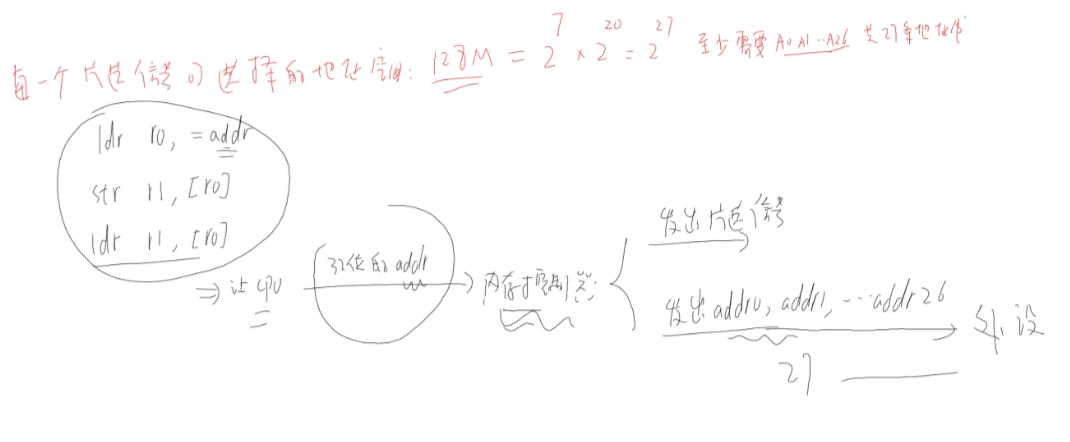 每一个片选信号可选择的地址空间: 128M = 2^7 × 2^20 = 2^27 至少需要 A0 A1 … A26 共27条地址线
ldr r0, = addr
str r1, [r0]
ldr r1, [r0]
⇒ 让 CPU 32位的 addr → 内存控制器:
发出片选信号
发出 addr0, addr1, … addr26 外设
27